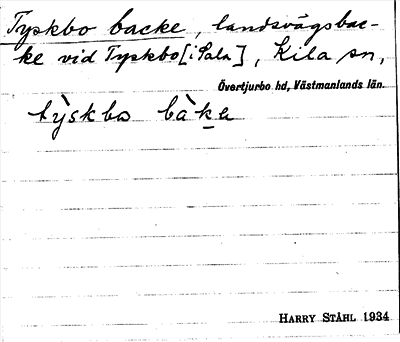 Tyskbo backe, landsvägsbac-
ke vid Tyskbo [i Sala], Kila sn,
Övertjurbo hd, Västmanlands län.
tỳskbo bàka
HARRY STÅHL 1934